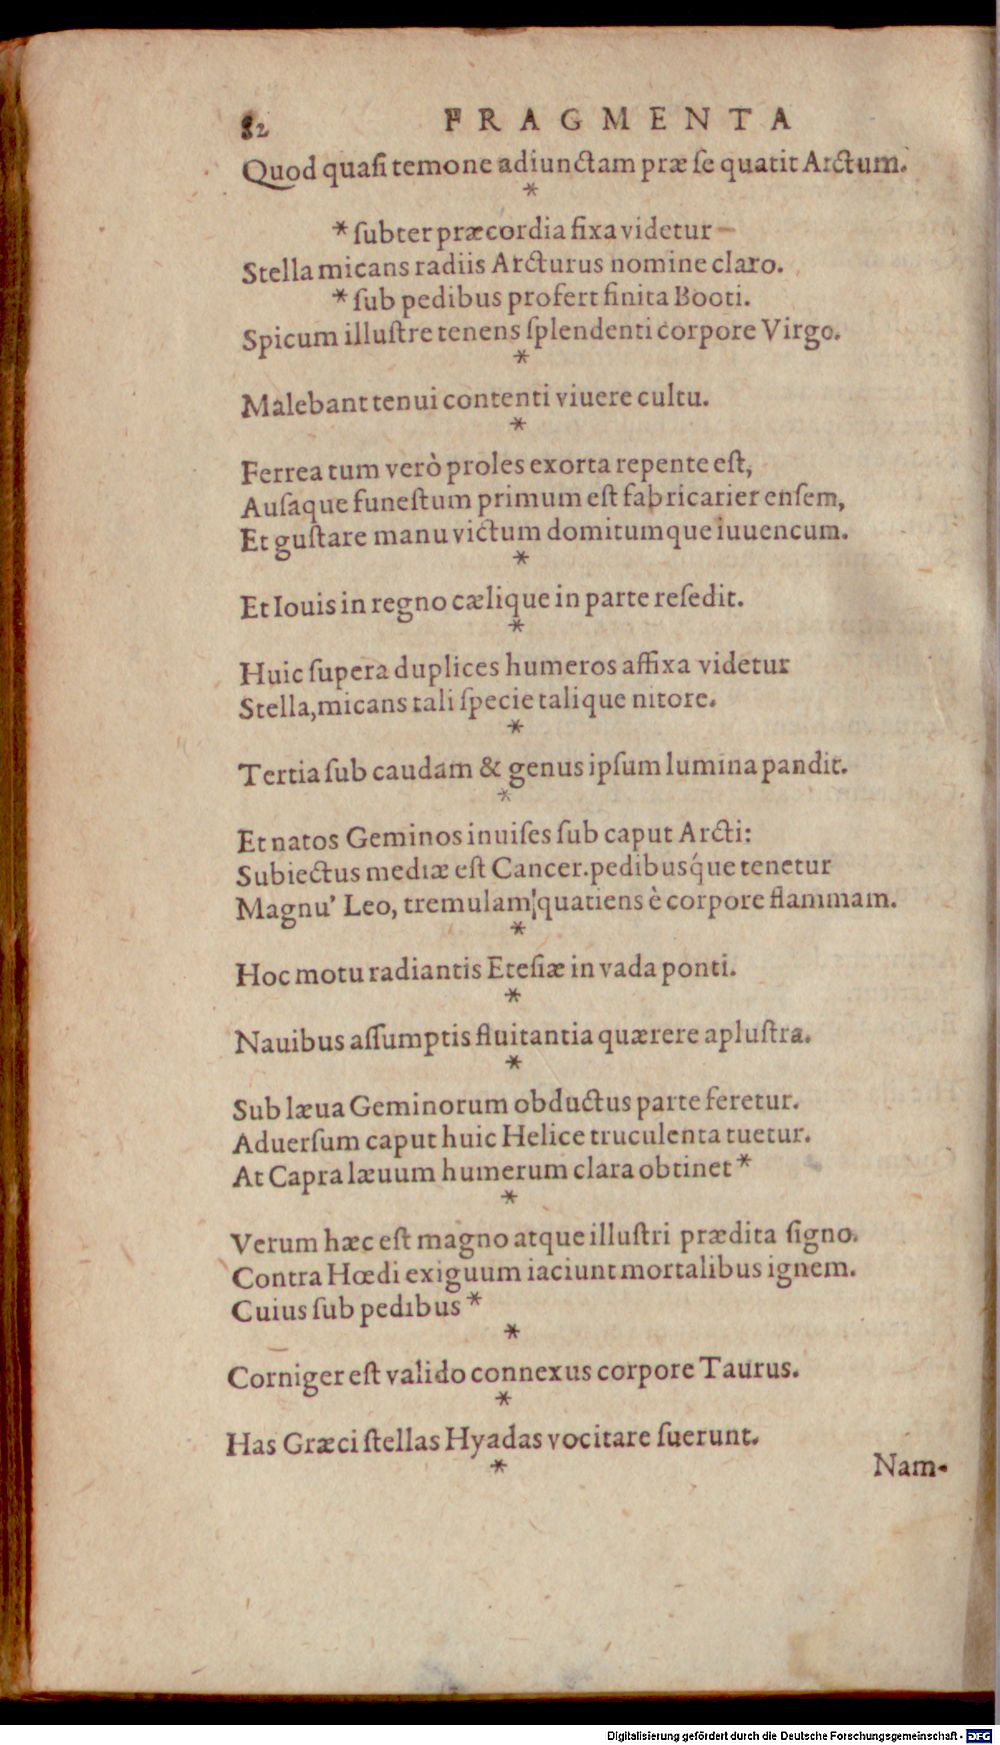 82 FRAGMENTA
Quod quaſi temone adiunctam præ ſe quatit Arctum.
*
* ſubter præcordia fixa videtur
Stella micans radiis Arcturus nomine claro.
* ſub pedibus profert finita Booti.
Spicum illuſtre tenens ſplendenti corpore Virgo.
*
Malebant tenui contenti viuere cultu.
*
Ferrea tum verò proles exorta repente eſt,
Auſaque funeſtum primum eſt fabricarier enſem,
Et guſtare manu victum domitumque iuuencum.
*
Et Iouis in regno cælique in parte reſedit.
*
Huic ſupera duplices humeros affixa videtur
Stella, micans tali ſpecie talique nitore.
*
Tertia ſub caudam & genus ipſum lumina pandit.
*
Et natos Geminos inuiſes ſub caput Arcti:
Subiectus mediæ eſt Cancer. pedibusq́ue tenetur
Magnu' Leo, tremulam quatiens è corpore flammam.
*
Hoc motu radiantis Eteſiæ in vada ponti.
*
Nauibus aſſumptis fluitantia quærere apluſtra.
*
Sub læua Geminorum obductus parte feretur.
Aduerſum caput huic Helice truculenta tuetur.
At Capra læuum humerum clara obtinet *
*
Verum hæc eſt magno atque illuſtri prædita ſigno.
Contra Hœdi exiguum iaciunt mortalibus ignem.
Cuius ſub pedibus *
*
Corniger eſt valido connexus corpore Taurus.
*
Has Græci ſtellas Hyadas vocitare ſuerunt.
*
Nam-
Digitalisierung gefördert durch die Deutsche Forschungsgemeinschaft - DFG